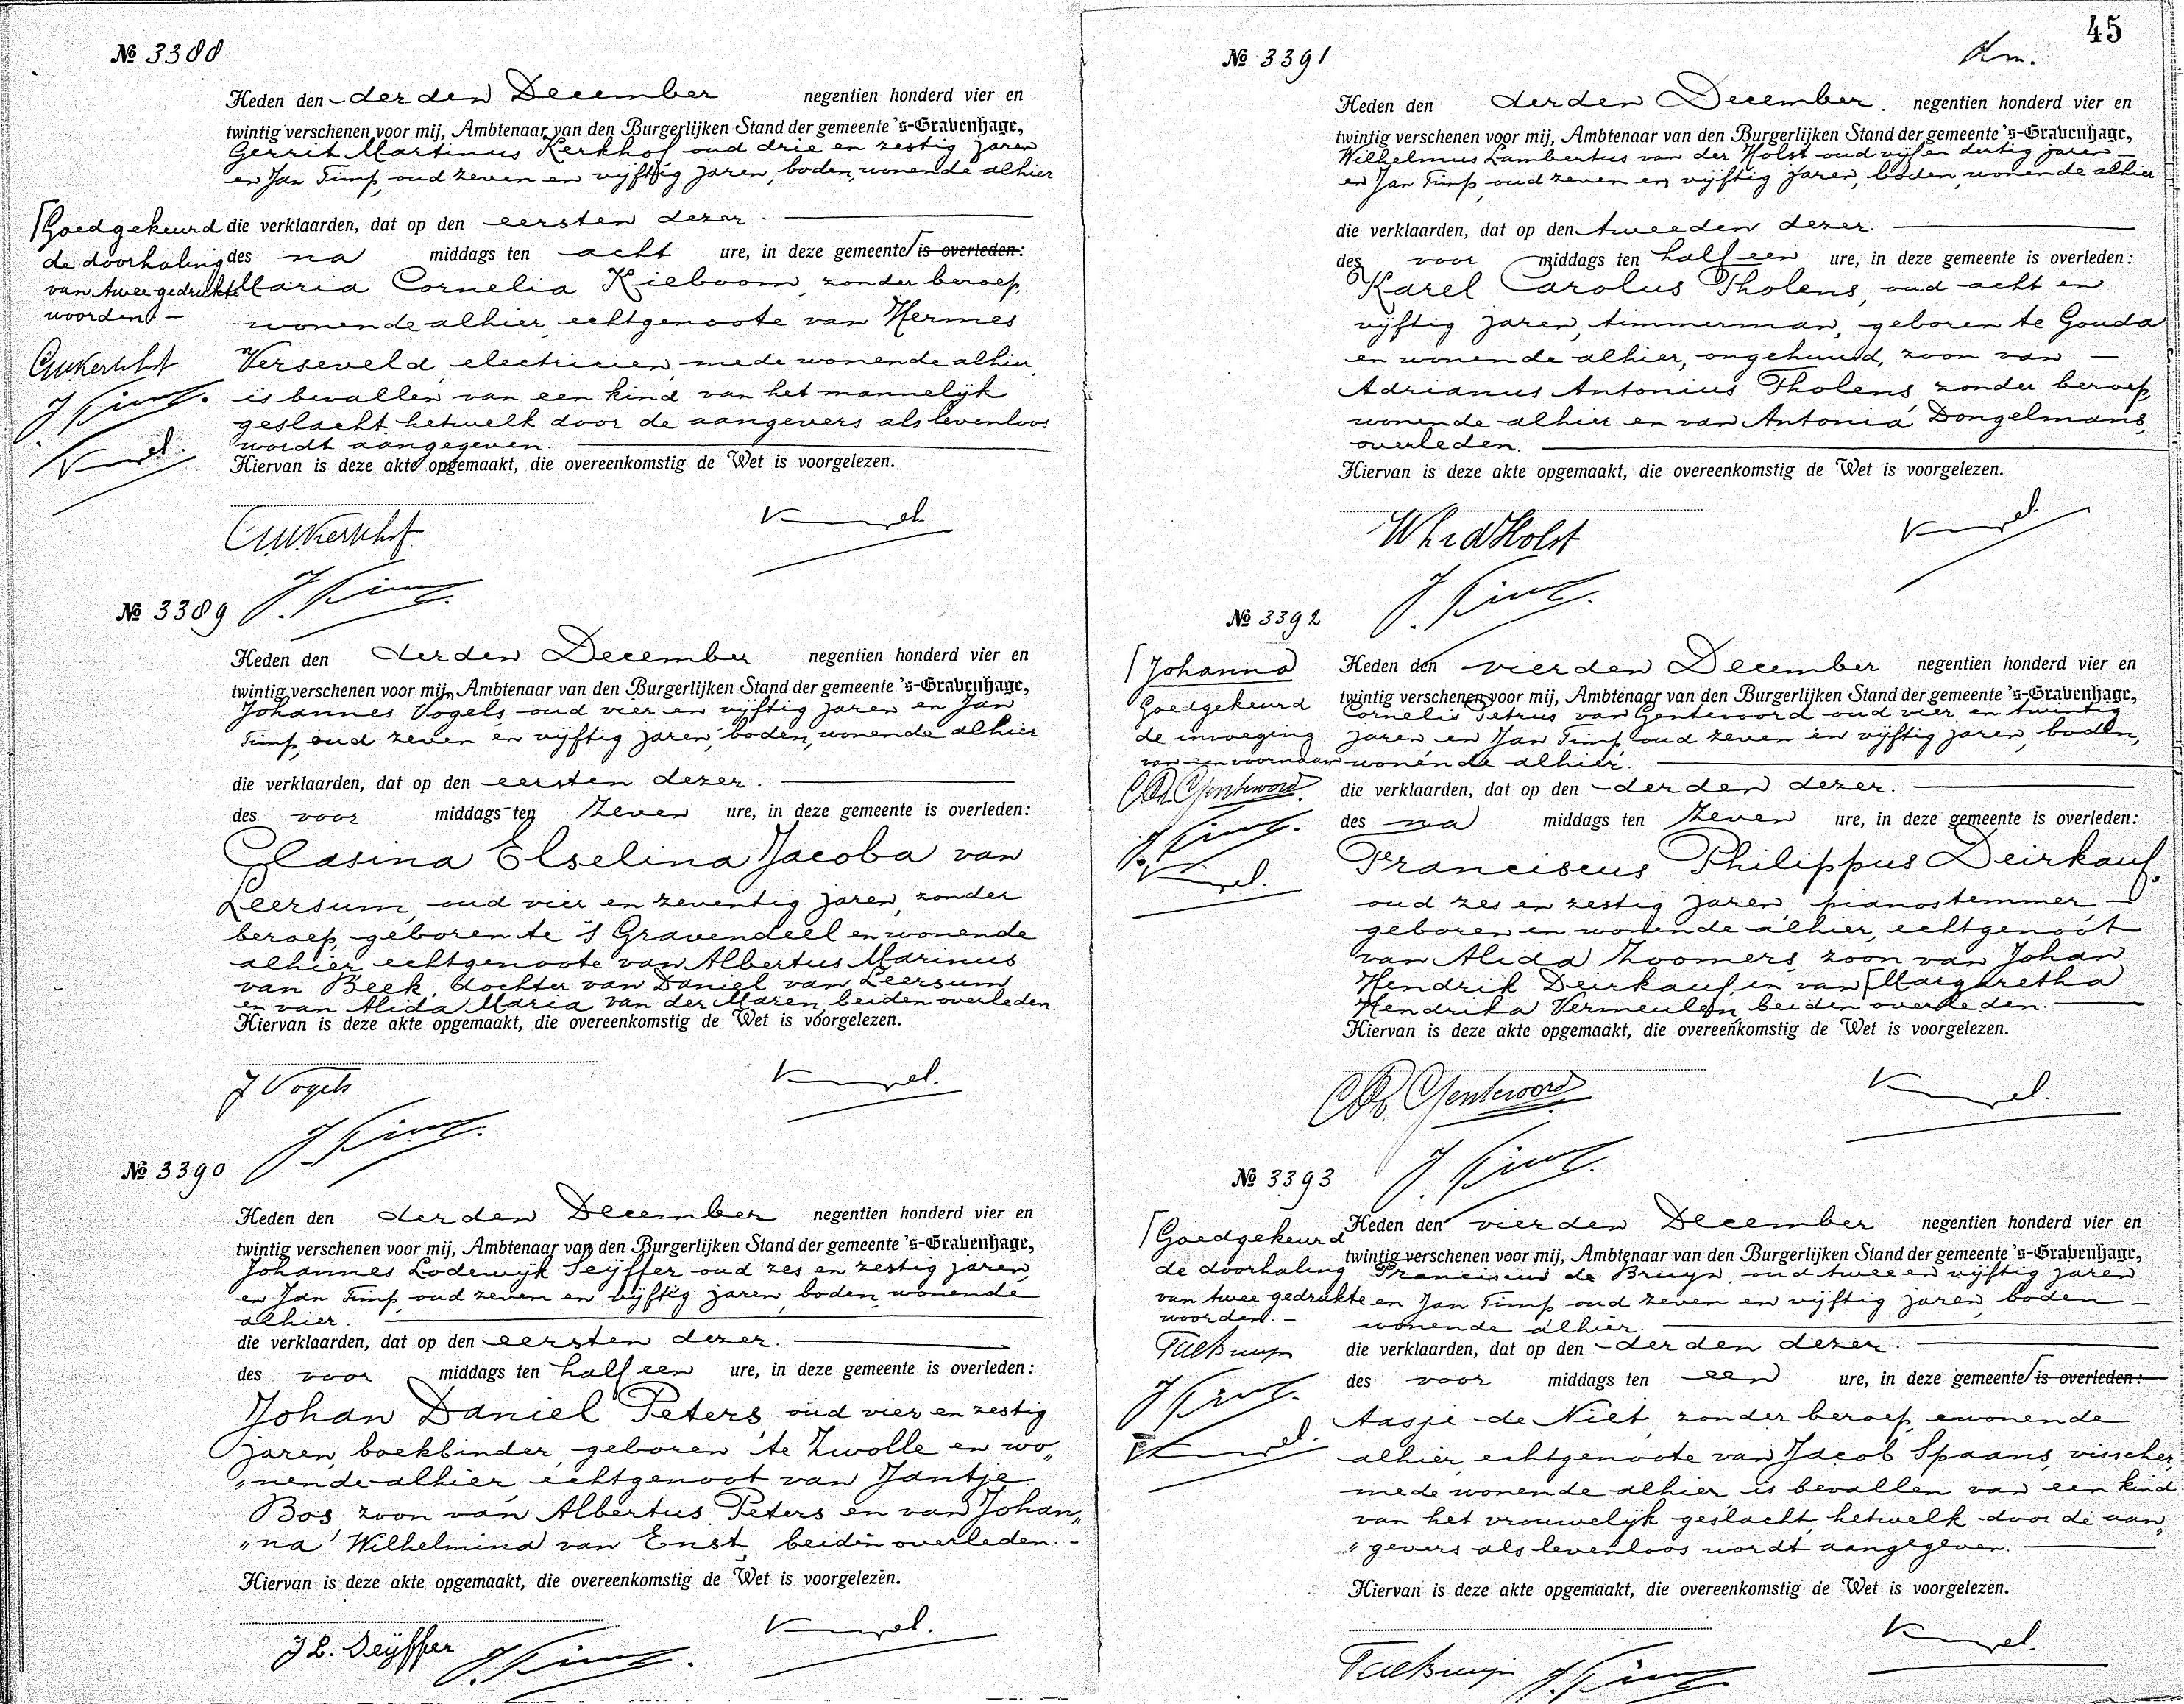 № 3388
Heden den derden December negentien honderd vier en
twintig verschenen voor mij, Ambtenaar van den Burgerlijken Stand der gemeente 's-Gravenhage,
Gerrit Martinus Kerkhof oud drie en zestig jaren
en Jan Timp, oud zeven en vijftig jaren, boden, wonende alhier
die verklaarden, dat op den eersten dezer.
des na middags ten acht ure, in deze gemeente is overleden:
Maria Cornelia Kieboom, zonder beroep,
wonende alhier, echtgenoote van Hermes
Verseveld, electricien, mede wonende alhier,
is bevallen van een kind van het mannelijk
geslacht, hetwelk door de aangevers als levenloos
wordt aangegeven.
Hiervan is deze akte opgemaakt, die overeenkomstig de Wet is voorgelezen.
Goedgekeurd
de doorhaling
van twee gedrukte
woorden. —
GMKerkhof
J Timp.
GMKerkhof
J. Timp.
№ 3389
Heden den derden December negentien honderd vier en
twintig verschenen voor mij, Ambtenaar van den Burgerlijken Stand der gemeente 's-Gravenhage,
Johannes Vogels oud vier en vijftig jaren en Jan
Timp, oud zeven en vijftig jaren, boden, wonende alhier
die verklaarden, dat op den eersten dezer.
des voor middags ten zeven ure, in deze gemeente is overleden:
Clasina Elselina Jacoba van
Leersum, oud vier en zeventig jaren, zonder
beroep, geboren te 's Gravendeel en wonende
alhier, echtgenoote van Albertus Marinus
van Beek, dochter van Daniel van Leersum
en van Alida Maria van der Maren, beiden overleden.
Hiervan is deze akte opgemaakt, die overeenkomstig de Wet is voorgelezen.
J Vogels
J Timp.
№ 3390
Heden den derden December negentien honderd vier en
twintig verschenen voor mij, Ambtenaar van den Burgerlijken Stand der gemeente 's-Gravenhage,
Johannes Lodewijk Seijffer oud zes en zestig jaren,
en Jan Timp, oud zeven en vijftig jaren, boden, wonende
alhier.
die verklaarden, dat op den eersten dezer.
des voor middags ten half een ure, in deze gemeente is overleden:
Johan Daniel Peters, oud vier en zestig
jaren, boekbinder, geboren te Zwolle en wo„
„nende alhier, echtgenoot van Jantje
Bos, zoon van Albertus Peters en van Johan„
„na Wilhelmina van Enst, beiden overleden. -
Hiervan is deze akte opgemaakt, die overeenkomstig de Wet is voorgelezen.
J L. Seijffer
J. Timp.
45
№ 3391
Heden den derden December. negentien honderd vier en
twintig verschenen voor mij, Ambtenaar van den Burgerlijken Stand der gemeente 's-Gravenhage,
Wilhelmus Lambertus van der Holst oud vijf en dertig jaren
en Jan Timp, oud zeven en vijftig jaren, boden, wonende alhier
die verklaarden, dat op den tweeden dezer.
des voor middags ten half een ure, in deze gemeente is overleden:
Karel Carolus Tholens, oud acht en
vijftig jaren, timmerman, geboren te Gouda
en wonende alhier, ongehuwd, zoon van —
Adrianus Antonius Tholens, zonder beroep,
wonende alhier en van Antonia Dongelmans,
overleden.
Hiervan is deze akte opgemaakt, die overeenkomstig de Wet is voorgelezen.
J. Timp.
№ 3392
Heden den vierden December negentien honderd vier en
twintig verschenen voor mij, Ambtenaar van den Burgerlijken Stand der gemeente 's-Gravenhage,
Cornelis Petrus van Gentevoord oud vier en twintig
jaren, en Jan Timp, oud zeven en vijftig jaren, boden,
wonende alhier.
die verklaarden, dat op den derden dezer.
des na middags ten zeven ure, in deze gemeente is overleden:
Franciscus Philippus Deirkauf,
oud zes en zestig jaren, pianostemmer, —
geboren en wonende alhier, echtgenoot
van Alida Zoomers, zoon van Johan
Hendrik Deirkauf en van Margaretha
Hendrika Vermeulen, beiden overleden.
Hiervan is deze akte opgemaakt, die overeenkomstig de Wet is voorgelezen.
Johanna
Goedgekeurd
de invoeging
van een voornaam
J Timp.
J. Timp.
№ 3393
Heden den vierden December negentien honderd vier en
twintig verschenen voor mij, Ambtenaar van den Burgerlijken Stand der gemeente 's-Gravenhage,
Franciscus de Bruyn, oud twee en vijftig jaren
en Jan Timp, oud zeven en vijftig jaren, boden —
wonende alhier.
die verklaarden, dat op den derden dezer.
des voor middags ten een ure, in deze gemeente is overleden:
Aasje de Niet, zonder beroep, wonende
alhier, echtgenoote van Jacob Spaans, visscher,
mede wonende alhier, is bevallen van een kind
van het vrouwelijk geslacht, hetwelk door de aan„
„gevers als levenloos wordt aangegeven.
Hiervan is deze akte opgemaakt, die overeenkomstig de Wet is voorgelezen.
Goedgekeurd
de doorhaling
van twee gedrukte
woorden. —
J Timp.
J. Timp.